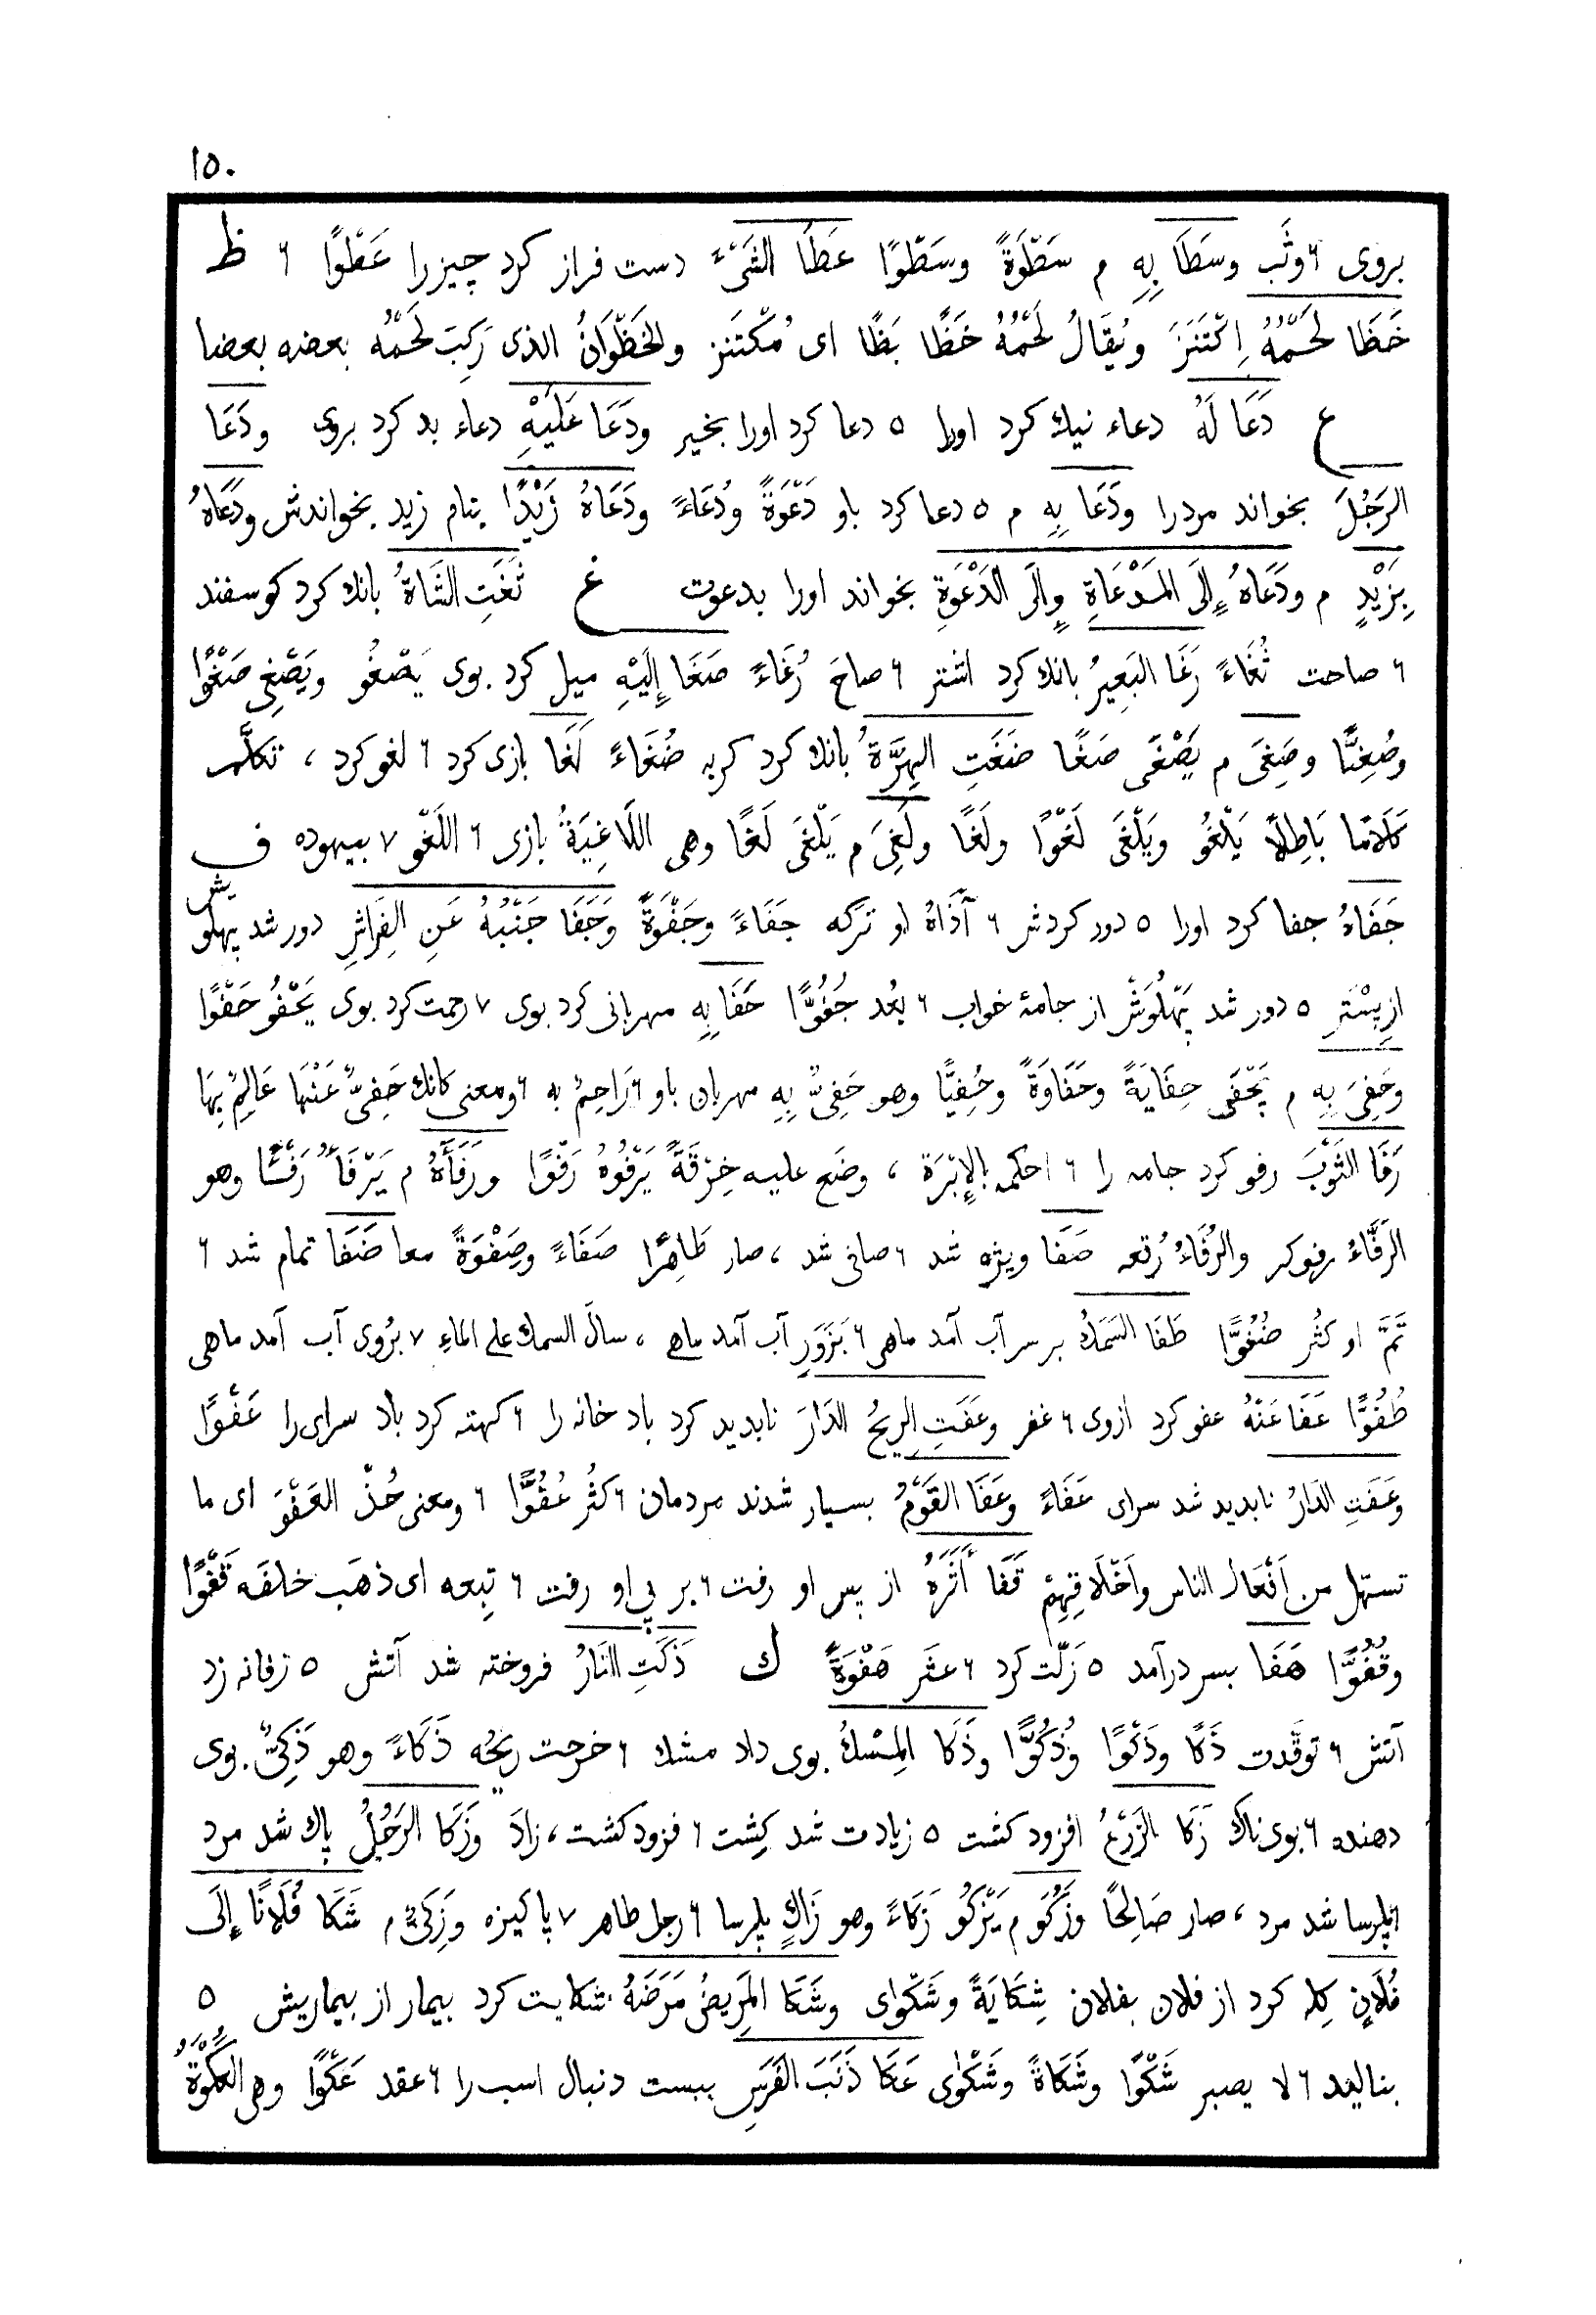 ١٥٠
بروى ٦ وثَب وسَطَا بِهِ م سَطْوَةً وسَطْوًا عَطَا الشَىْءَ دست فراز كرد چيز را عَطْوًا ٦ ظ
خَظَا لَحْمُهُ اِكْتَنَزَ ويُقَالُ لَحْمُهُ خَظًا بَظًا اى مُكْتَنز والخَظْوَانُ الذى رَكِبَ لَحْمُه بعضه بعضا
ع دَعَا لَهُ دعاء نيك كرد اورا ٥ دعا كرد اورا بخير ودَعَا عَلَيْهِ دعاء بد كرد بروى ودَعَا
الرَجُلَ بخواند مرد را ودَعَا بِهِ م ٥ دعا كرد باو دَعْوَةً ودُعَاءً ودَعَاهُ زَيْدًا بنام زيد بخواندش ودَعَاهُ
بِزَيْدٍ م ودَعَاهُ إِلَى المَدْعَاةِ وإِلَى الدَعْوَةِ بخواند اورا بدعوت غ ثَغَتِ الشَاةُ بانك كرد كوسفند
٦ صاحت ثُغَاءً رَغَا البَعِيرُ بانك كرد اشتر ٦ صاحَ رُغَاءً صَغَا إِلَيْهِ ميل كرد بوى يَصْغُو ويَصْغِى صَغْوًا
وصُغِيًّا وصَغِىَ م يَصْغَى صَغًا ضَغَتِ الهِرَّةُ بانك كرد كربه ضُغَاءً لَغَا بازى كرد ٦ لغو كرد ، تكلَّم
كَلَامًا بَاطِلاً يَلْغُو ويَلْغَى لَغْوًا ولَغًا ولَغِىَ م يَلْغَى لَغًا وهى اللَاغِيَةُ بازى ٦ اللَغْو ٧ بيهوده ف
جَفَاهُ جفا كرد اورا ٥ دور كردش ٦ آذَاهُ او تركه جَفَاءً وجَفْوَةً وجَفَا جَنْبُهُ عَنِ الفِرَاشِ دور شد پهلويش
از بِسْتَرِ ٥ دور شد پَهْلُوَشْ از جامهٔ خواب ٦ بَعُد جُفُوًّا حَفَا بِهِ مهربانى كرد بوى ٧ رحمت كرد بوى يَحْفُو حَفْوًا
وحَفِىَ بِهِ م يَحْفَى حِفَايَةً وحَفَاوَةً وحُفِيًّا وهو حَفِىٌّ بِهِ مهربان باو ٦ رَاحِمٌ به ٦ ومعنى كانك حَفِىٌّ عَنْهَا عَالِمٌ بِهَا
رَفَا الثَوْبَ رفو كرد جامه را ٦ احكمه بالإِبْرَة ، وضَع عليه خِرْقَةً يَرْفُوهُ رَفْوًا ورَفَأَهُ م يَرْفَأُ رَفْئًا وهو
الرَفَّاءُ رفوكر والرُفَاءُ رُقعه صَفَا ويژه شد ٦ صافى شد ، صار طَاهِرًا صَفَاءً وصِفْوَةً معا ضَفَا تمام شد ٦
تَمَّ او كثُر ضُفُوًّا طَفَا السَمَكُ بر سر آب آمد ماهى ٦ بَزَوَرِ آب آمد ماهى ، سالَ السمك على الماءِ ٧ برُوى آب آمد ماهى
طُفُوًّا عَفَا عَنْهُ عفو كرد ازوى ٦ غفر وعَفَتِ الرِيحُ الدَارَ نابديد كرد باد خانه را ٦ كهنه كرد باد سراى را عَفْوًا
وعَفَتِ الدَارُ نابديد شد سراى عَفَاءً وعَفَا القَوْمُ بسيار شدند مردمان ٦ كثُر عُفُوًّا ٦ ومعنى خُذْ العَفْوَ اى ما
تستهل من اَفْعَال الناس واَخْلَاقِهِمْ قَفَا أَثَرَهُ از پس او رفت ٦ بر پى او رفت ٦ تبِعه اى ذهَب خلفَه قَفْوًا
وقُفُوًّا هَفَا بسر درآمد ٥ زَلّت كرد ٦ عثَر هَفْوَةً ك ذَكَتِ النَارُ فروخته شد آتش ٥ زفانه زد
آتش ٦ توقَّدت ذَكًا وذَكْوًا وذُكُوًّا وذَكَا المِسْكُ بوى داد مشك ٦ خرجت ريحُه ذَكَاءً وهو ذَكِىٌّ بوى
دهنده ٦ بوى ناك زَكَا الزَرْعُ افزود كشت ٥ زيادت شد كِشت ٦ فزود كشت ، زادَ وزَكَا الرَجُلُ پاك شد مرد
٦ پارسا شد مرد ، صار صَالِحًا وزَكُوَ م يَزْكُو زَكَاءً وهو زَاكٍ پارسا ٦ رجل طاهر ٧ پاكيزه وزَكِىٌّ م شَكَا فُلَانًا إِلَى
فُلَانٍ كِله كرد از فلان بفلان شِكَايَةً وشَكْوَاى وشَكَا المَرِيضُ مَرَضَهُ شكايت كرد بيمار از بيماريش ٥
بناليد ٦ لا يصبر شَكْوًا وشَكَاةً وشَكْوَى عَكَا ذَنَبَ الفَرَسِ ببست دنبال اسب را ٦ عقد عَكْوًا وهى العُكْوَةُ